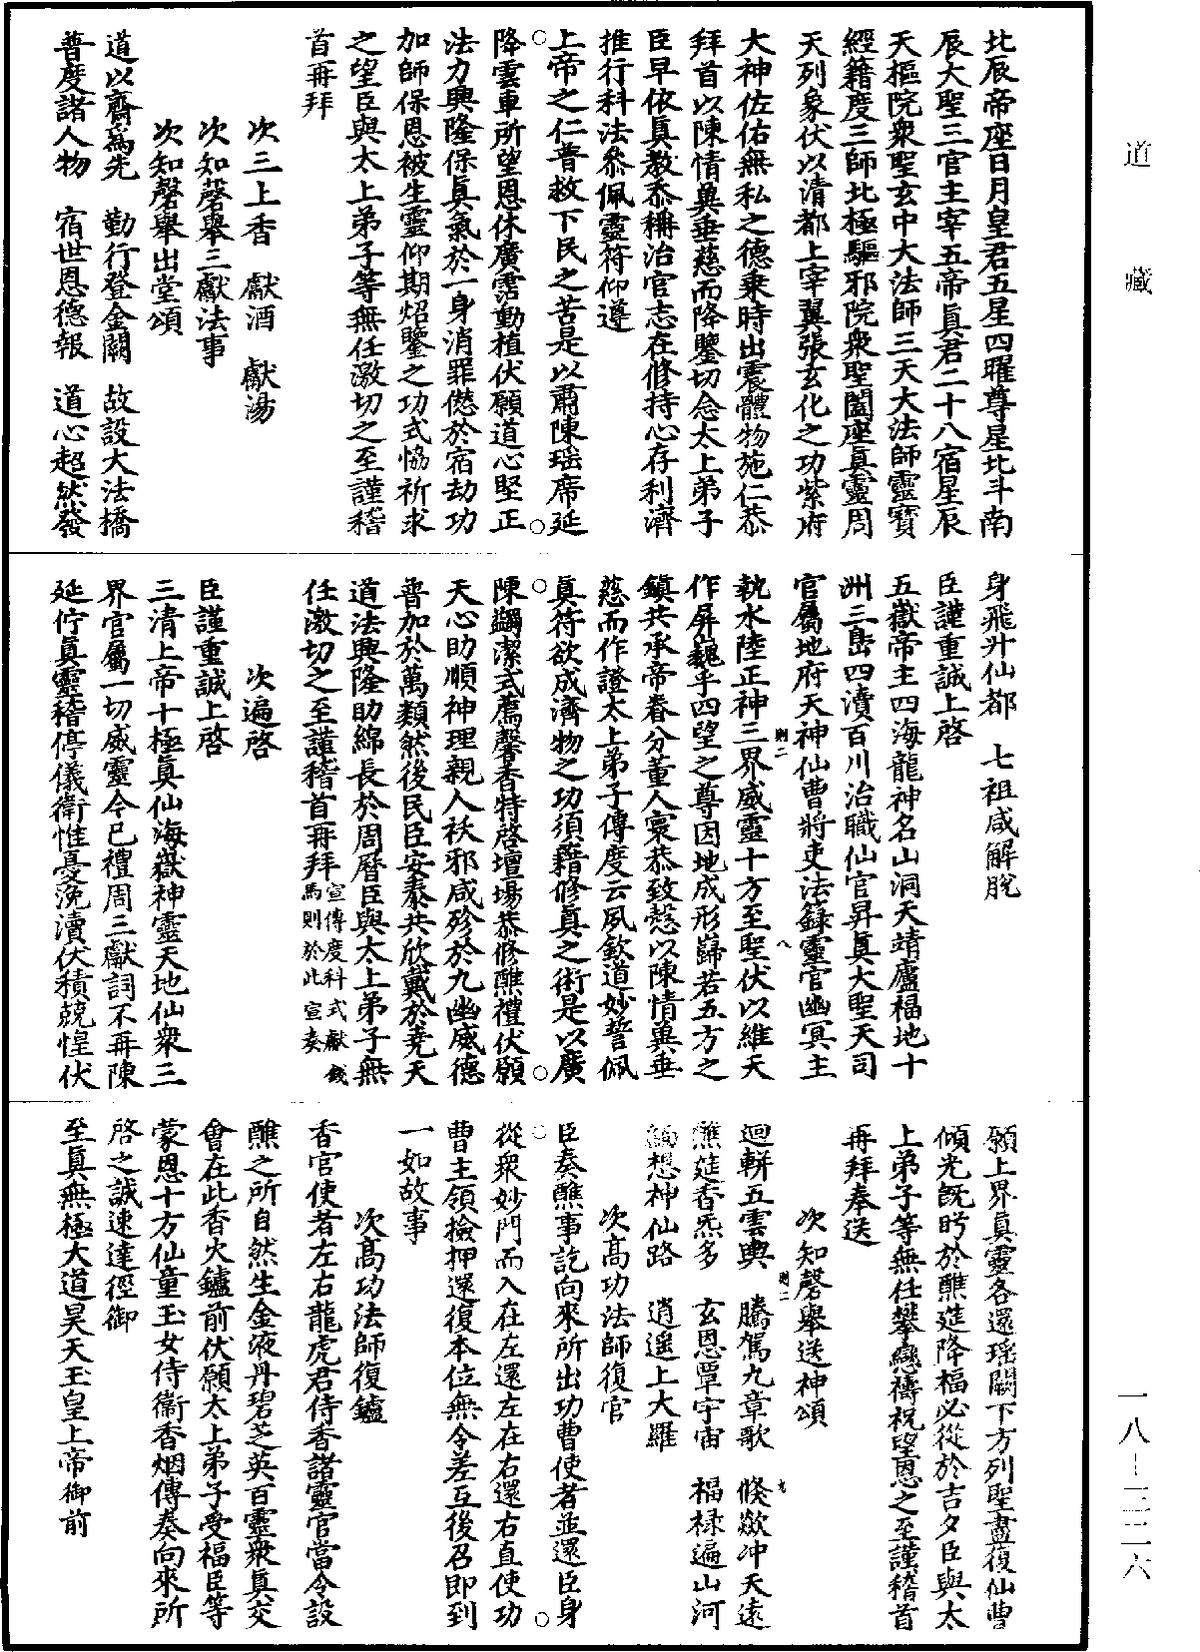 道藏
北辰帝座日月皇君五星四曜尊星北斗南
辰大聖三官主宰五帝眞君二十八宿星辰
天樞院衆聖玄中大法師三天大法師靈寶
經籍度三師北極驅邪院衆聖闔座眞靈周
天列象伏以清都上宰翼張玄化之功紫府
大神佐佑無私之德乗時出震體物施仁恭
拜首以陳情兾垂慈而降鑒切念太上弟子
臣早依眞教忝稱治官志在修持心存利濟
推行科法叅佩靈符仰遵
上帝之仁普救下民之苦是以肅陳瑶席延
降雲車所望恩休廣霑動植伏願道心堅正
法力興隆保眞氣於一身消罪愆於宿劫功
加師保恩被生靈仰期炤鑒之功式恊祈求
之望臣與太上弟子等無任激切之至謹稽
首再拜
次三上香 獻酒 獻湯
次知磬舉三獻法事
次知磬舉出堂頌
道以齋爲先 勤行登金闕 故設大法橋
普度諸人物 宿世恩德報 道心超然發
身飛升仙都 七祖咸解脫
臣謹重誠上啓
五嶽帝主四海龍神名山洞天靖廬福地十
洲三島四瀆百川治職仙官昇眞大聖天司
官屬地府天神仙曹將吏法籙靈官幽冥主
執水陸正神三界威靈十方至聖伏以維天
作屏巍乎四望之尊因地成形巋若五方之
鎭共承帝眷分董人寰恭致慤以陳情兾垂
慈而作證太上弟子傳度云夙欽道妙誓佩
眞符欲成濟物之功須藉修眞之術是以廣
陳蠲潔式薦馨香特啓壇場恭修醮禮伏願
天心助順神理親人祅邪咸殄於九幽威德
普加於萬類然後民臣安泰共欣戴於堯天
道法興隆助綿長於周曆臣與太上弟子無
任激切之至謹稽首再拜宣傳度科式獻錢
馬則於此宣奏
次遍啓
臣謹重誠上啓
三清上帝十極眞仙海嶽神靈天地仙衆三
界官屬一切威靈今已禮周三獻詞不再陳
延佇眞靈稽停儀衛惟憂浼瀆伏積兢惶伏
願上界眞靈各還瑶闕下方列聖盡復仙曹
傾光旣盻於醮進降福必從於吉夕臣與太
上弟子等無任攀戀禱祝望恩之至謹稽首
再拜奉送
次知磬舉送神頌
迴輧五雲輿 騰駕九章歌 倏歘冲天遠
醮筵香炁多 玄恩覃宇宙 福禄遍山河
緬想神仙路 逍遥上大羅
次高功法師復官
臣奏醮事訖向來所出功曹使者並還臣身
從衆妙門而入在左還左在右還右直使功
曹主領撿押還復本位無令差互後召即到
一如故事
次高功法師復鑪
香官使者左右龍虎君侍香諸靈官當令設
醮之所自然生金液丹碧芝英百靈衆眞交
會在此香火鑪前伏願太上弟子受福臣等
蒙恩十方仙童玉女侍衞香烟傳奏向來所
啓之誠速達徑御
至眞無極大道昊天玉皇上帝御前
一八-三二六